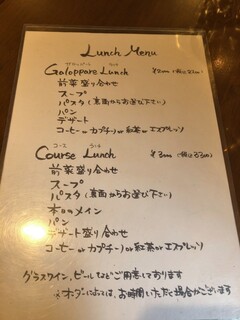 Lunch Menu
Galoppare Lunch ¥2000 (税込2200)
前菜盛り合わせ
スープ
パスタ (裏面からお選び下さい)
パン
デザート
コーヒー or カプチーノ or 紅茶 or エスプレッソ
コース ランチ
Course Lunch ¥3000 (税込3300)
前菜盛り合わせ
スープ
パスタ (裏面からお選び下さい)
本日のメイン
パン
デザート盛り合わせ
コーヒー or カプチーノ or 紅茶 or エスプレッソ
グラスワイン、ビールなどご用意しております
※オーダーによっては、お時間いただく場合がございます